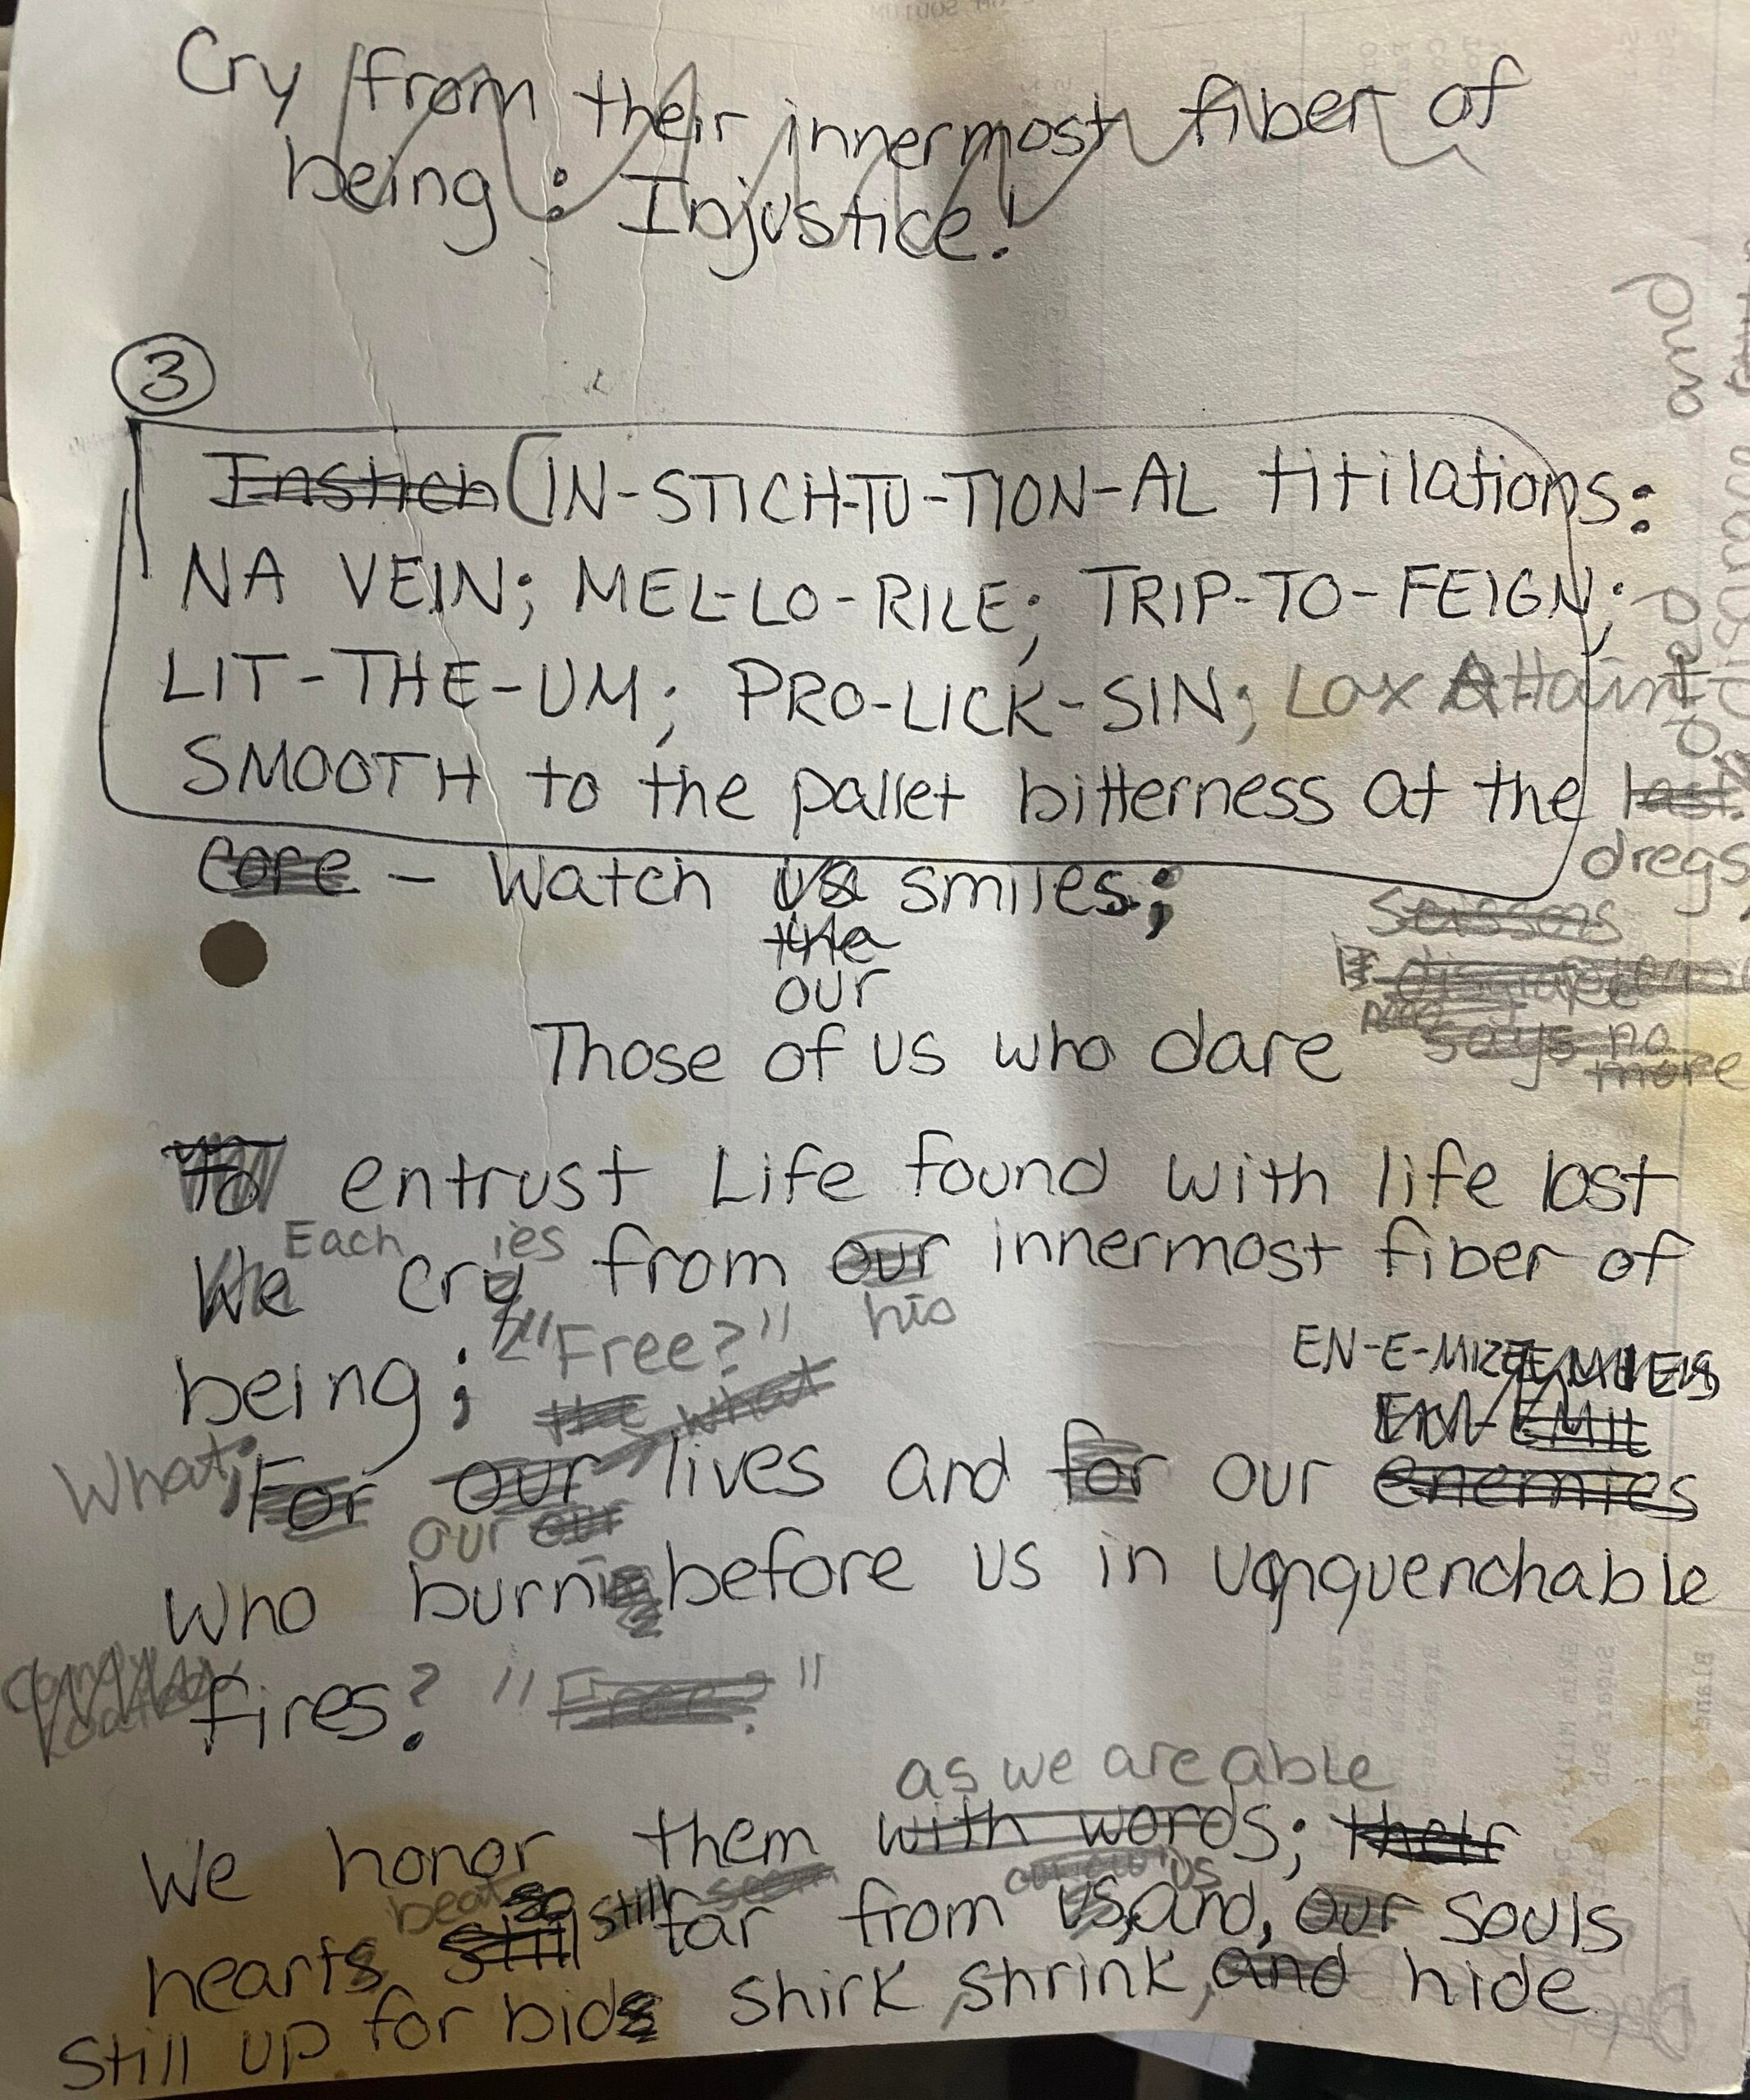 Cry from their innermost fiber of
being : Injustice!
3
Enstich (IN-STICH-TU-TION-AL titilations:
NA VEIN; MEL-LO-RILE; TRIP-TO-FEIGN;
LIT-THE-UM; PRO-LICK-SIN; Lax Attaint
SMOOTH to the pallet bitterness at the last.
dregs,
core - Watch us smiles;
the
our
Scissors
says no
more
Those of us who dare
To entrust Life found with life lost
Each ies
We cry from our innermost fiber of
his
being; "Free?"
the what
EN-E-MIZE
EN-EMIE
What, For our lives and for our enemies
our our
Who burn before us in unquenchable
fires? "Free?"
as we are able
We honor them with words; their
beat so still seem us
hearts still far from us, and, our souls
Still up for bids shirk, shrink, and hide
and